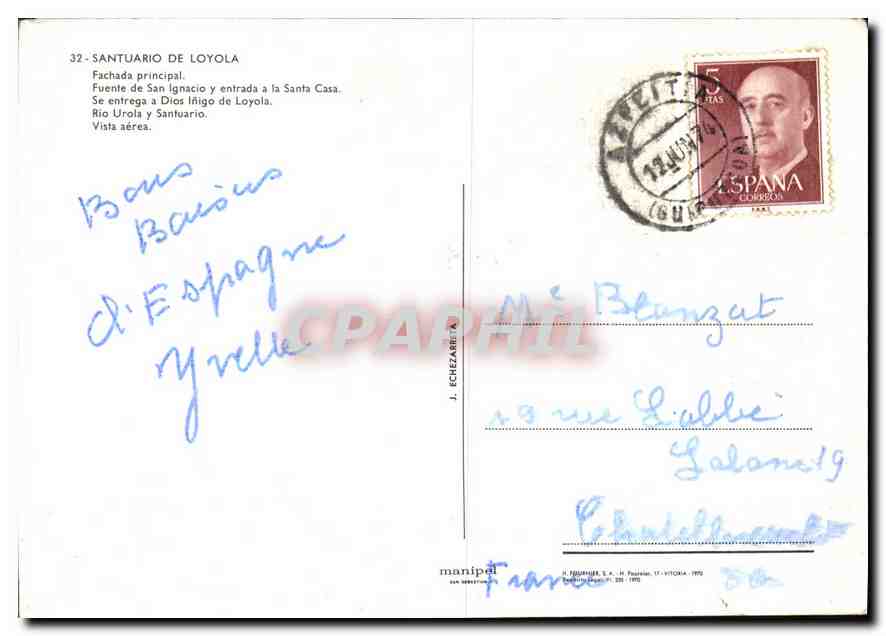 32 - SANTUARIO DE LOYOLA
Fachada principal.
Fuente de San Ignacio y entrada a la Santa Casa.
Se entrega a Dios Iñigo de Loyola.
Río Urola y Santuario.
Vista aérea.
Bons
Baisers
d'Espagne
J. ECHEZARRETA
manipel
SAN SEBASTIAN
5
PTAS
ESPAÑA
CORREOS
AZPEITIA
12 JUN 74
(GUIPUZCOA)
Me Blanzat
19 rue Labbé
France
H. FOURNIER, S. A. - H. Fournier, 17 - VITORIA - 1970
Depósito Legal: VI. 235 - 1970
CPAPHIL